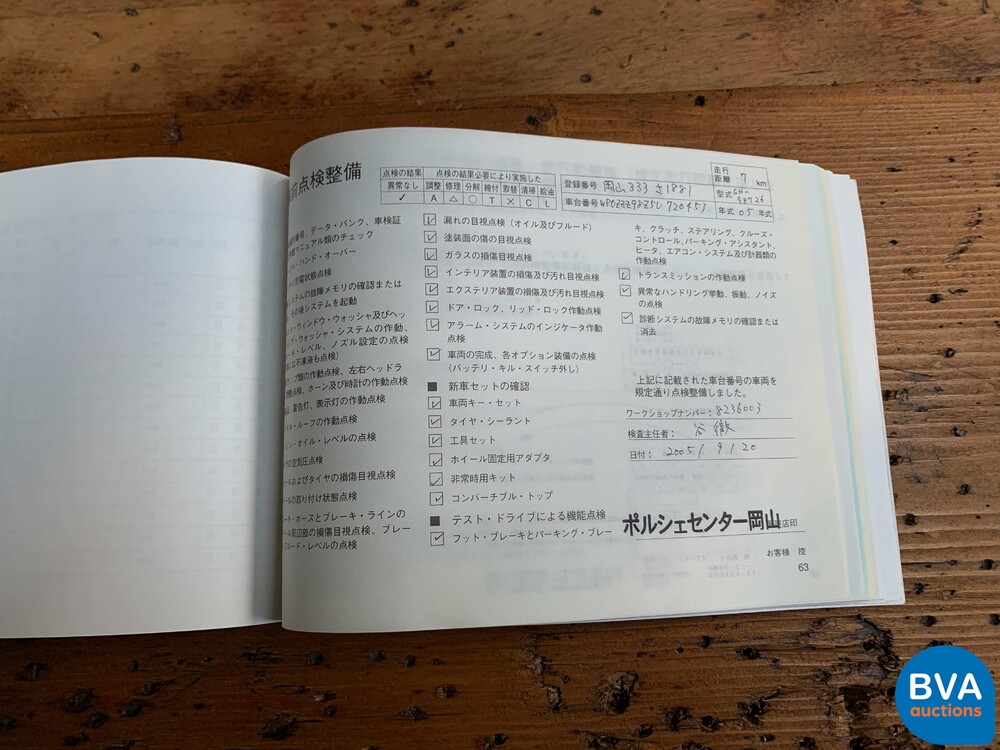 前点検整備
点検の結果 点検の結果必要により実施した
異常なし 調整 修理 分解 締付 取替 清掃 給油
✓ A △ ○ T × C L
登録番号 岡山333 さ1881
車台番号 WP0ZZZ98Z5U720451
走行距離 7 km
型式 GH-98726
年式 05 年式
番号、データ・バンク、車検証
マニュアル類のチェック
ハンド・オーバー
充電状態点検
システムの故障メモリの確認または
その後システムを起動
ウィンドウ・ウォッシャ及びヘッ
ウォッシャ・システムの作動、
ド・レベル、ノズル設定の点検
不凍液も点検)
ランプ類の作動点検、左右ヘッドラ
点検、ホーン及び時計の作動点検
警告灯、表示灯の作動点検
ル・ルーフの作動点検
ン・オイル・レベルの点検
の空気圧点検
ールおよびタイヤの損傷目視点検
ールの取り付け状態点検
ーキ・ホースとブレーキ・ラインの
周辺部の損傷目視点検、ブレー
フルード・レベルの点検
漏れの目視点検(オイル及びフルード)
塗装面の傷の目視点検
ガラスの損傷目視点検
インテリア装置の損傷及び汚れ目視点検
エクステリア装置の損傷及び汚れ目視点検
ドア・ロック、リッド・ロック作動点検
アラーム・システムのインジケータ作動
点検
車両の完成、各オプション装備の点検
(バッテリ・キル・スイッチ外し)
■ 新車セットの確認
車両キー・セット
タイヤ・シーラント
工具セット
ホイール固定用アダプタ
非常時用キット
コンバーチブル・トップ
■ テスト・ドライブによる機能点検
フット・ブレーキとパーキング・ブレー
キ、クラッチ、ステアリング、クルーズ・
コントロール、パーキング・アシスタント、
ヒータ、エアコン・システム及び計器類の
作動点検
トランスミッションの作動点検
異常なハンドリング挙動、振動、ノイズ
の点検
診断システムの故障メモリの確認または
消去
上記に記載された車台番号の車両を
規定通り点検整備しました。
ワークショップナンバー: 8236003
検査主任者: 谷 徹
日付: 2005 / 9 / 20
ポルシェセンター岡山
店印
お客様 控
63
BVA
auctions